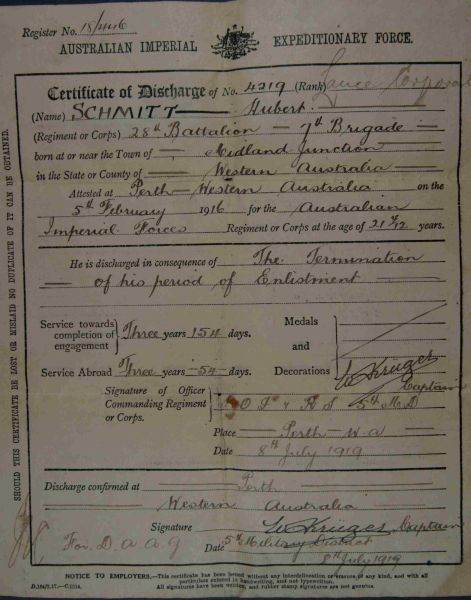 Register No. 15/446
AUSTRALIAN IMPERIAL EXPEDITIONARY FORCE.
Certificate of Discharge of No. 4219 (Rank) Lance Corporal
(Name) SCHMITT Hubert
(Regiment or Corps) 28th Battalion 7th Brigade
born at or near the Town of Midland Junction
in the State or County of Western Australia
Attested at Perth Western Australia on the
5th February 1916 for the Australian
Imperial Forces Regiment or Corps at the age of 21 years.
He is discharged in consequence of The Termination
of his period of Enlistment
Service towards completion of engagement } Three years 154 days.
Medals and Decorations
Service Abroad Three years 54 days.
Signature of Officer Commanding Regiment or Corps.
W Krüger Captain
5th M D
Place Perth W.A
Date 8th July 1919
Discharge confirmed at Perth
Western Australia
Signature W Krüger Captain
For D. A. A. G Date 5th Military District
8th July 1919
NOTICE TO EMPLOYERS.—This certificate has been issued without any interdelineation or erasure of any kind, and with all
particulars entered in handwriting, and not typewritten.
All signatures have been written, and rubber stamp signatures are not genuine.
SHOULD THIS CERTIFICATE BE LOST OR MISLAID NO DUPLICATE OF IT CAN BE OBTAINED.